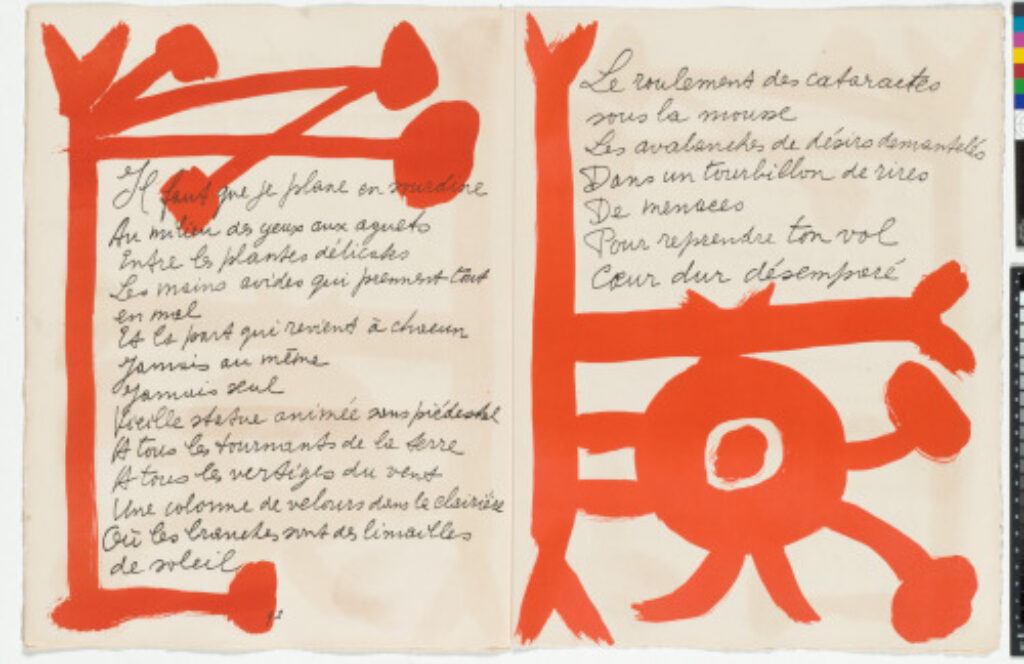 Il faut que je plane en sourdine
Au milieu des yeux aux aguets
Entre les plantes délicates
Les mains avides qui prennent tout
en mal
Et la part qui revient à chacun
Jamais au même
Jamais seul
Vieille statue animée sans piédestal
A tous les tournants de la terre
A tous les vertiges du vent
Une colonne de velours dans la clairière
Où les branches sont des limailles
de soleil
Le roulement des cataractes
sous la mousse
Les avalanches de désirs demantelés
Dans un tourbillon de rires
De menaces
Pour reprendre ton vol
Cœur dur désemparé